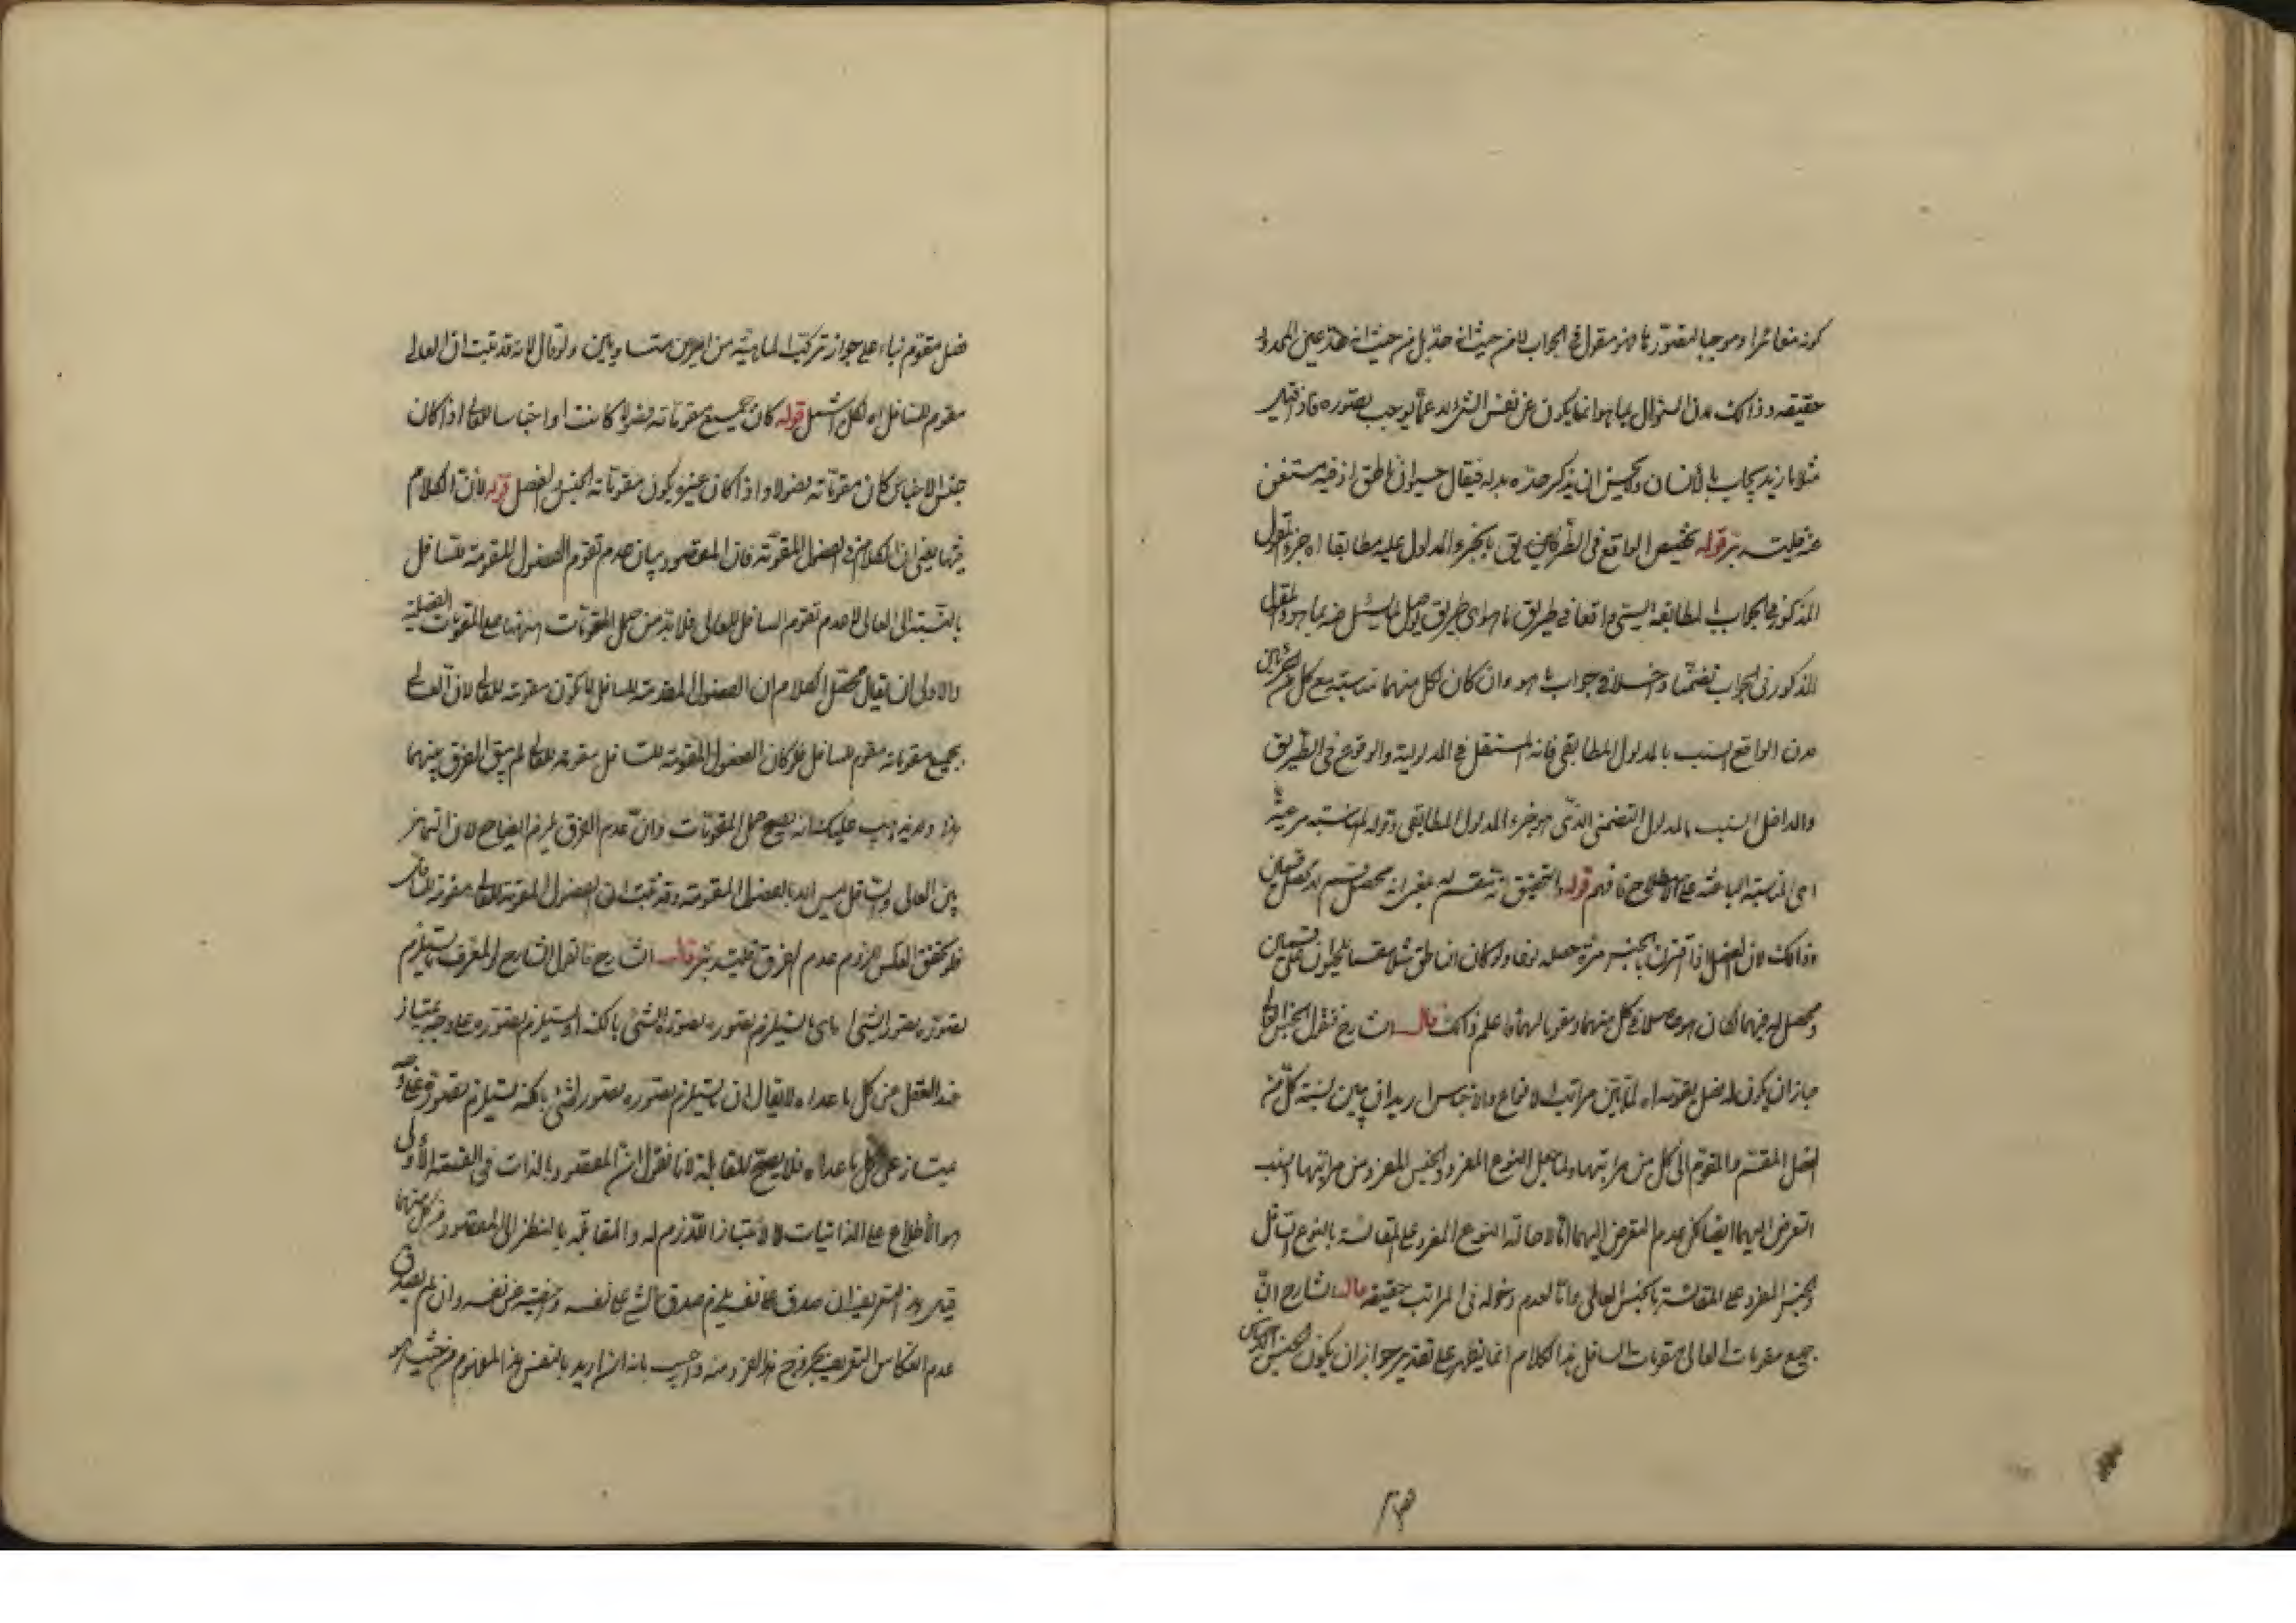 كونه مغائرا وموجبا لتصور ما هو مقول في الجواب لا من حيث انه حد بل من حيث انه هذ عين المحدود
حقيقه وذلك لان السؤال بما هو انما يكون عن نفس الشئ لا عما يوجب تصوره فاذا قيل
مثلا ما زيد يجاب بالأنسان ولا يحسن ان يذكر حده بدله فيقال حيوان ناطق اذ فيه مستغن
عنه فليتدبر قوله تخصيص الواقع في الطريق بالجزء المدلول عليه مطابقا اه جزء المقول
المذكور في الجواب بالمطابقة ليسمى واقعا في طريق ما هو اي طريق يوصل لما سئل عنه بما هو والمقول
المذكور في الجواب تضمنا داخلا في جواب ما هو وان كان لكل منهما مناسبة مع كل من الجزئين
لان الواقع انسب بالمدلول المطابقي فانه المستقل في المدلولية والوقوع في الطريق
والداخل انسب بالمدلول التضمني الذي هو جزء المدلول المطابقي وقوله المناسبة مرعية
اي المناسبة الباعثة على الاصطلاح فافهم قوله والتحقيق انه تقسم له بمعنى انه محصل قسم له لا محصل قسمين
وذلك لان الفصل اذا اقترن بالجنس مرة حصله نوعا ولو كان الناطق مثلا مقسما للحيوان على قسمين
ومحصل له فيهما لكان هو حاصلا في كل منهما ومقوما لهما فاعلم ذلك قال الشارح فنقول الجنس العالي
جاز ان يكون له فصل يقومه اه لما بين مراتب الانواع والاجناس اريد ان يبين نسبة كل من
الفصل المقسم والمقوم الى كل من مراتبها ولما جعل النوع المفرد والجنس المفرد من مراتبها انسب
التعرض اليهما ايضا لكن عدم التعرض اليهما اما لاحالة النوع المفرد على المقائسة بالنوع السافل
والجنس المفرد على المقائسة بالجنس العالي واما لعدم دخوله في المراتب حقيقة قال الشارح ان
جميع مقومات العالي مقومات السافل هذا الكلام انما يظهر على تقدير جواز ان يكون لجنس الاجناس
فصل مقوم بناء على جواز تركب الماهية من امرين متساويين ولو قال لانه قد ثبت ان العالي
مقوم للسافل اه لكان اشمل قوله كان جميع مقوماته فصولا كانت او اجناسا للعالي اذا كان
جنس الاجناس كان مقوماته فصولا واذا كان غيره يكون مقوماته الجنس والفصل قوله لان الكلام
فيها يعني ان الكلام في الفصول المقومة فان المقصود بيان عدم تقوم الفصول المقومة للسافل
بالنسبة الى العالي لا عدم تقوم السافل للعالي فلا بد من حمل المقومات ههنا على المقومات الفصلية
والاولى ان يقال محصل الكلام ان الفصول المقومة للسافل لا يكون مقومة للعالي لان العالي
بجميع مقوماته مقوم للسافل فلو كان الفصول المقومة للسافل مقومة للعالي لم يبق الفرق بينهما
هذا ولا يذهب عليك انه يصح حمل المقومات وان عدم الفرق يلزم ايضا ح لان التمائز
بين العالي والسافل ليس الا بالفصول المقومة وقد ثبت ان الفصول المقومة للعالي مقومة للسافل
فلو تحقق العكس لزم عدم الفرق فليتدبر قال الشارح فاقول الشارح المعرف ما يستلزم
تصوره تصور الشئ اي ما يستلزم تصوره تصور الشئ بالكنه او يستلزم تصوره على وجه يمتاز
عند العقل عن كل ما عداه لا يقال ان ما يستلزم تصوره تصور الشئ بالكنه يستلزم تصوره على وجه
يمتاز عن كل ما عداه فلا يصح المقابلة لانا نقول ان المقصود بالذات في القسم الأولى
هو الأطلاع على الذاتيات لا الامتياز اللازم له والمقابلة بالنظر الى المقصود من كل منهما
قيل هذا التعريف ان صدق على نفسه يلزم صدق الشئ على نفسه واخصيته عن نفسه وان لم يصدق
عدم انعكاس التعريف بخروج هذا الفرد منه واجيب بانه ان اريد بالنفس هذا المفهوم من حيث هو